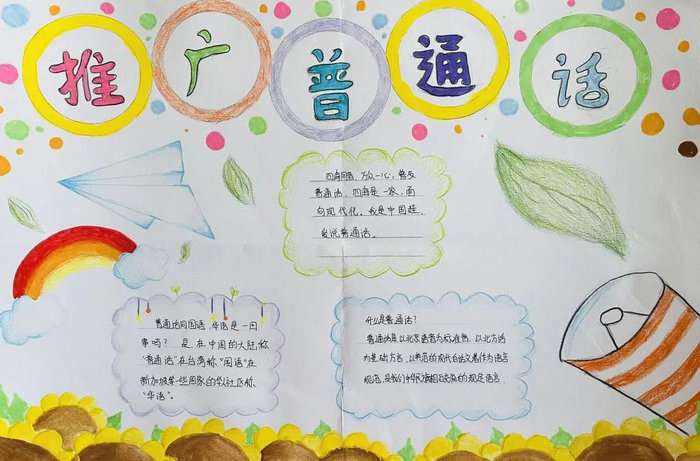 推广普通话
四海同音，万众一心，普及
普通话，四海是一家，面
向现代化，我是中国娃，
爱说普通话。
普通话同国语，华语是一回
事吗？是在中国的大陆称
"普通话"在台湾称"国语"在
新加坡等一些国家的华人社区称
"华语"。
什么是普通话？
普通话是以北京语音为标准音，以北方话
为基础方言，以典范的现代白话文著作为语言
规范，是我们中华民族相互交流的规定语言.